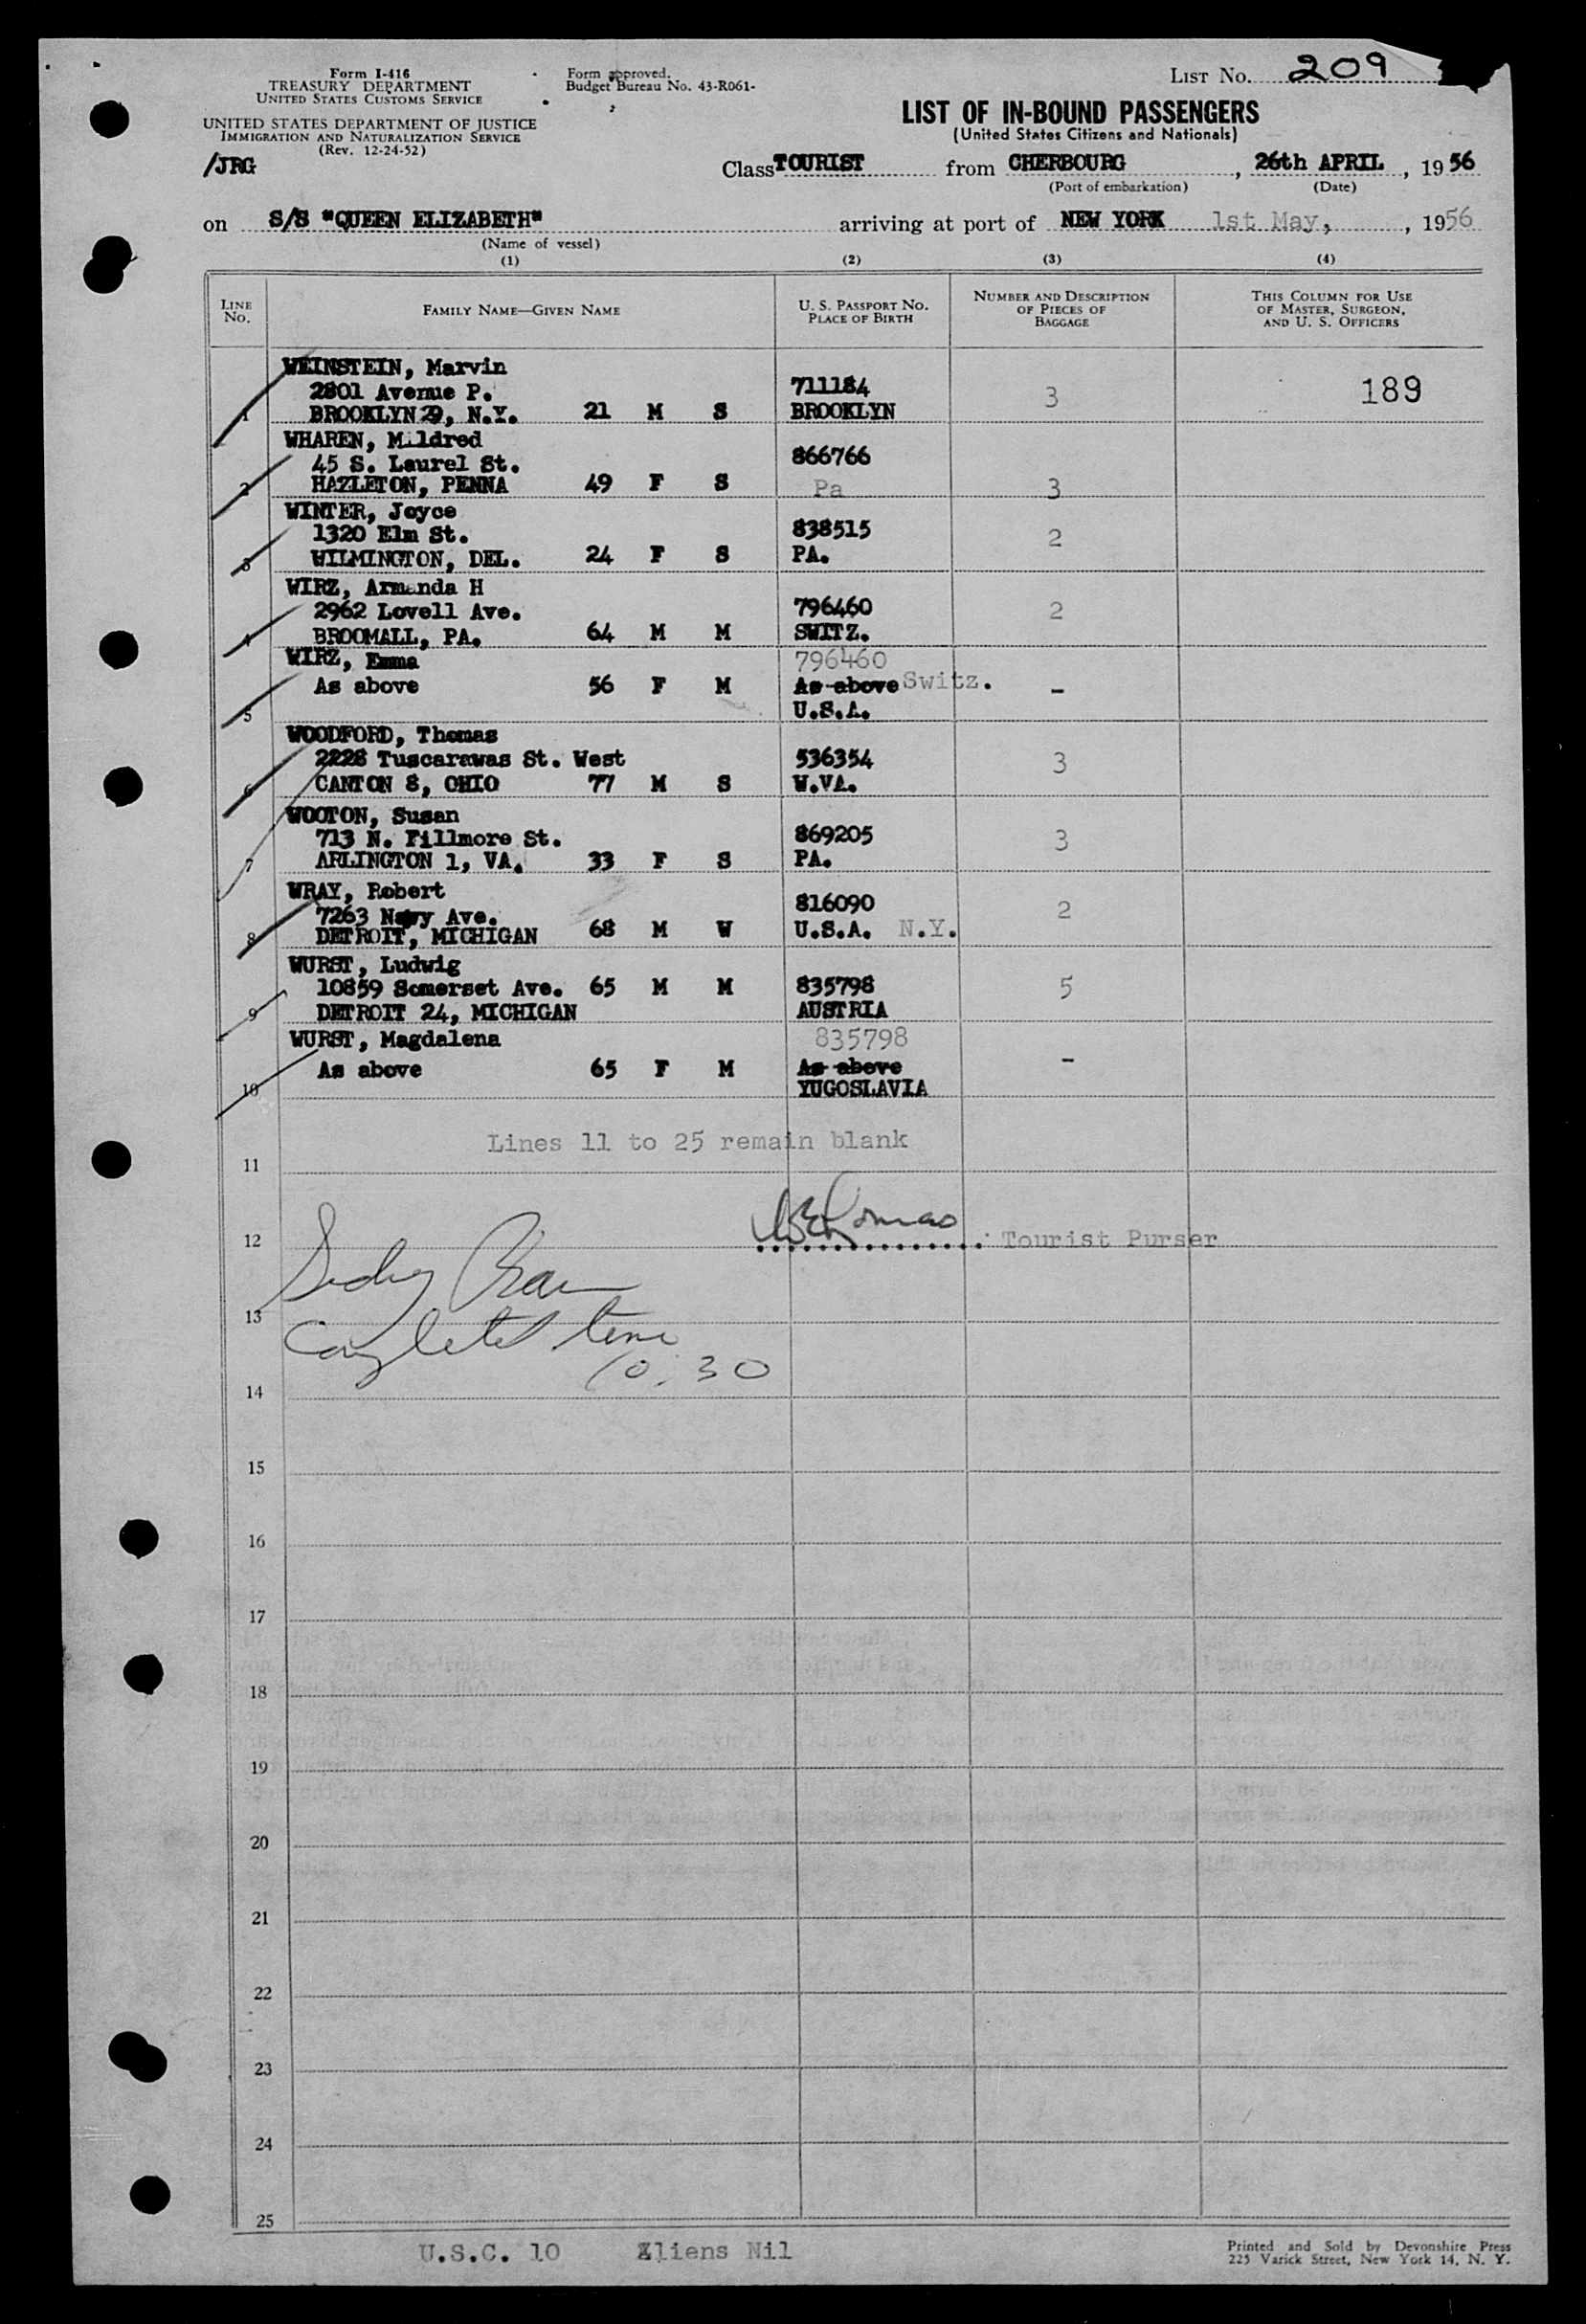 Form I-416
TREASURY DEPARTMENT
UNITED STATES CUSTOMS SERVICE
UNITED STATES DEPARTMENT OF JUSTICE
IMMIGRATION AND NATURALIZATION SERVICE
(Rev. 12-24-52)
/JRG
Form approved.
Budget Bureau No. 43-R061-
LIST No. 209
LIST OF IN-BOUND PASSENGERS
(United States Citizens and Nationals)
Class TOURIST from CHERBOURG, 26th APRIL, 1956
(Port of embarkation) (Date)
on S/S "QUEEN ELIZABETH" arriving at port of NEW YORK 1st May, , 1956
(Name of vessel)
(1) (2) (3) (4)
LINE No. FAMILY NAME—GIVEN NAME U. S. PASSPORT No. PLACE OF BIRTH NUMBER AND DESCRIPTION OF PIECES OF BAGGAGE THIS COLUMN FOR USE OF MASTER, SURGEON, AND U. S. OFFICERS
WEINSTEIN, Marvin
2801 Avenue P. 711184 3 189
1 BROOKLYN 29, N.Y. 21 M S BROOKLYN
WHAREN, Mildred
45 S. Laurel St. 866766
2 HAZLETON, PENNA 49 F S Pa 3
WINTER, Joyce
1320 Elm St. 838515 2
3 WILMINGTON, DEL. 24 F S PA.
WIRZ, Armanda H
2962 Lovell Ave. 796460 2
4 BROOMALL, PA. 64 M M SWITZ.
WIRZ, Emma 796460
As above 56 F M As above Switz. -
5 U.S.A.
WOODFORD, Thomas
2228 Tuscarawas St. West 536354 3
6 CANTON 8, OHIO 77 M S W.VA.
WOOTON, Susan
713 N. Fillmore St. 869205 3
7 ARLINGTON 1, VA. 33 F S PA.
WRAY, Robert
7263 Navy Ave. 816090 2
8 DETROIT, MICHIGAN 68 M W U.S.A. N.Y.
WURST, Ludwig
10859 Somerset Ave. 65 M M 835798 5
9 DETROIT 24, MICHIGAN AUSTRIA
WURST, Magdalena 835798
As above 65 F M As above -
10 YUGOSLAVIA
Lines 11 to 25 remain blank
11
12 Tourist Purser
13
Completed time
10.30
14
15
16
17
18
19
20
21
22
23
24
25
U.S.C. 10 Aliens Nil
Printed and Sold by Devonshire Press
225 Varick Street, New York 14, N. Y.